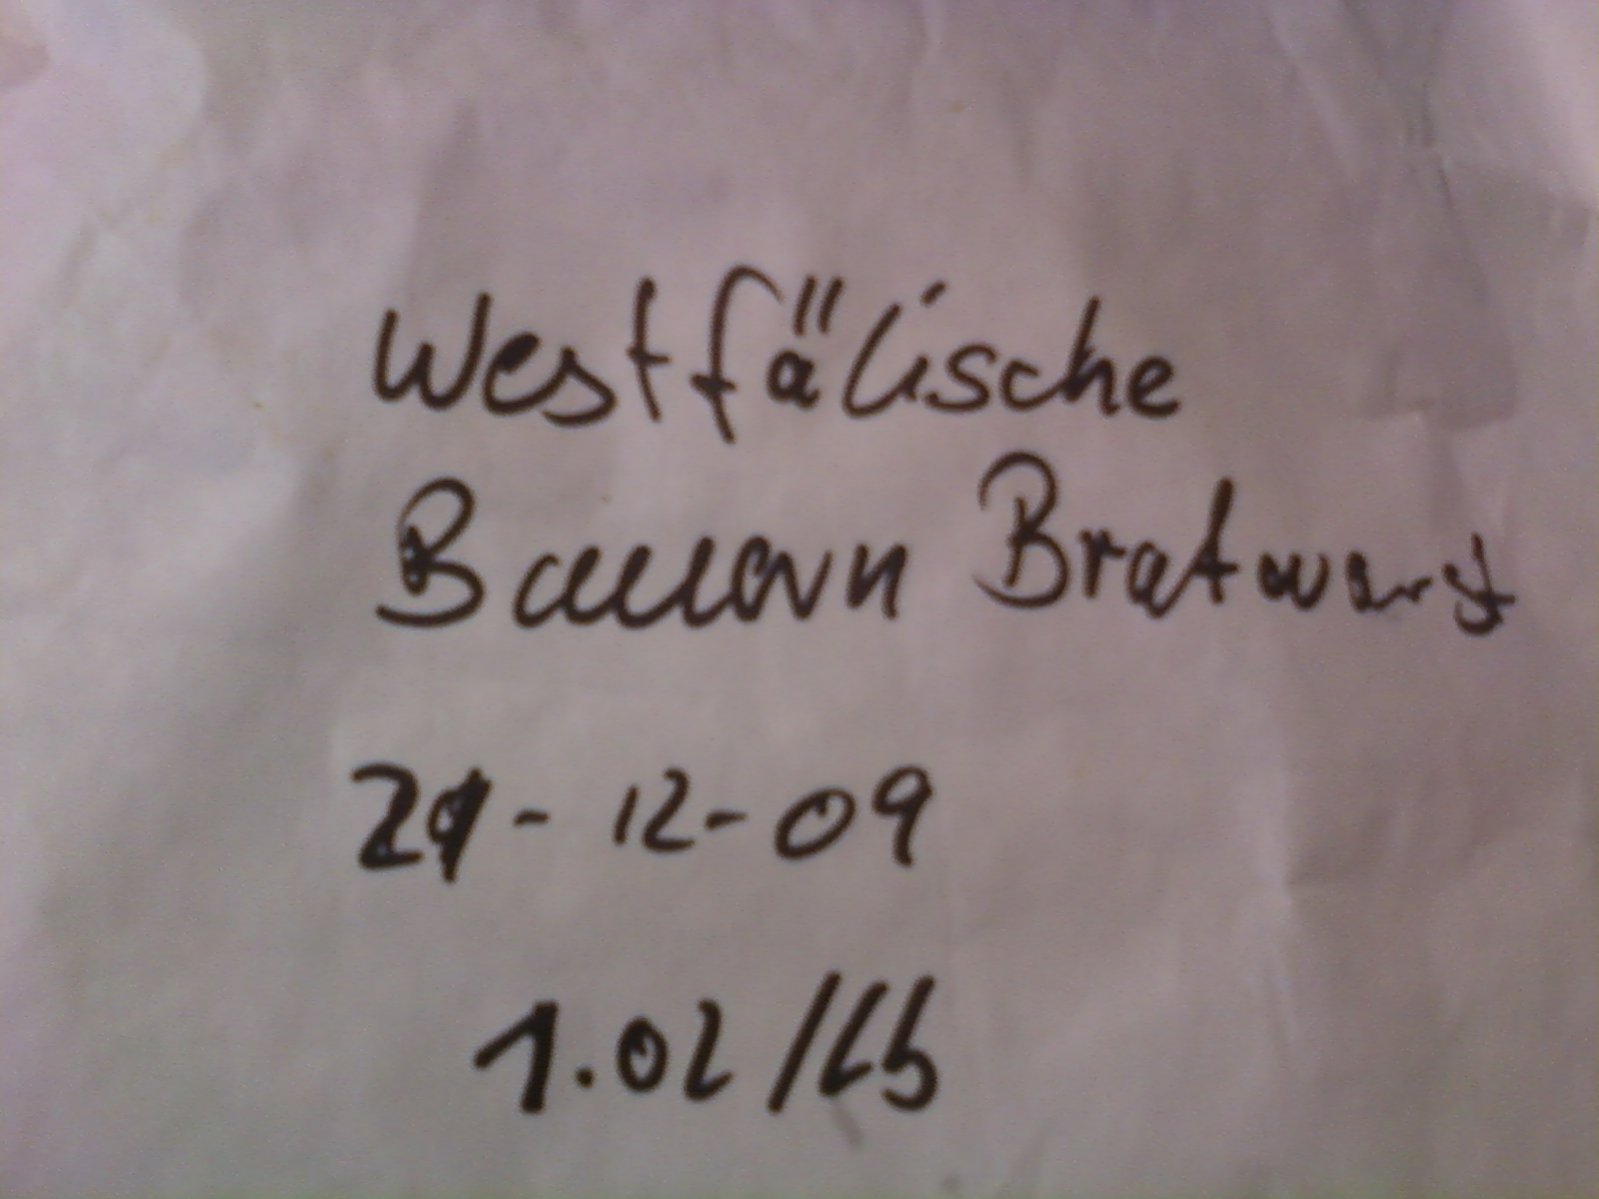 Westfälische
Bauern Bratwurst
21-12-09
1.02/Lb